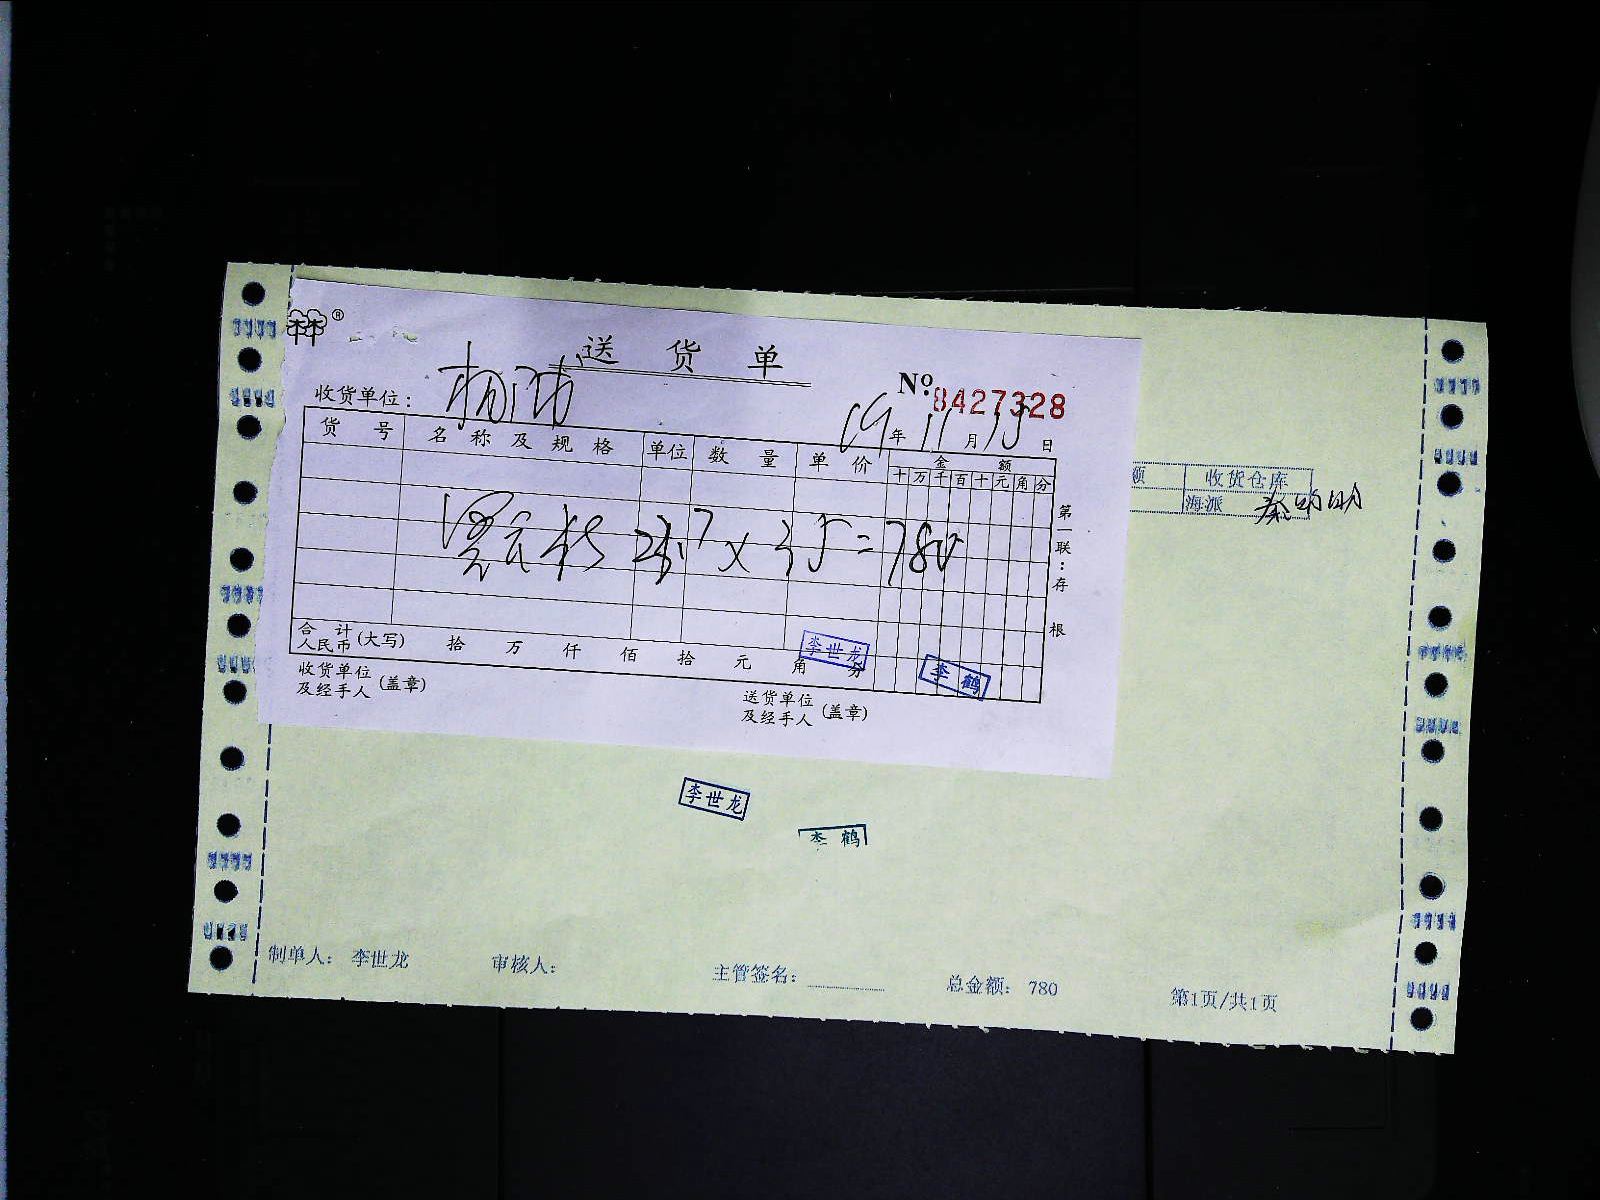 林®
送货单
收货单位：
№ 8427328
19年11月15日
货号 名称及规格 单位 数量 单价 金额
十万千百十元角分
额 收货仓库
海派
=780
第一联：存根
合计人民币(大写) 拾 万 仟 佰 拾 元 角 分
李世龙
李鹤
收货单位及经手人(盖章)
送货单位及经手人(盖章)
李世龙
李鹤
制单人： 李世龙 审核人： 主管签名： 总金额： 780 第1页/共1页